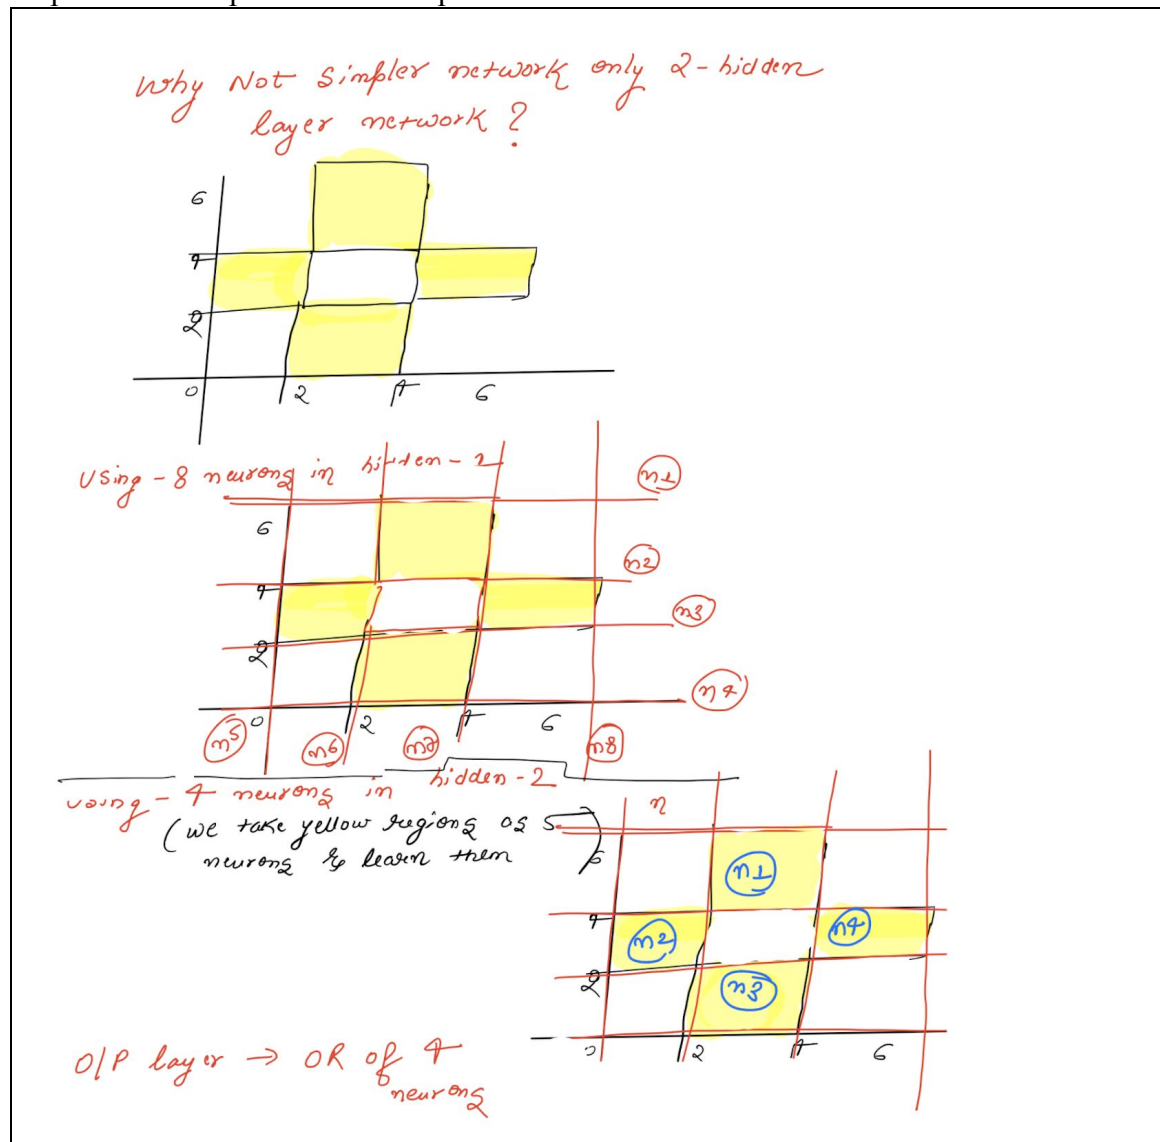 Why Not Simpler network only 2-hidden
layer network ?
6
4
2
0 2 4 6
Using - 8 neurons in hidden - 1
n1
6
n2
4
n3
2
n4
0 2 4 6
n5 n6 n7 n8
using - 4 neurons in hidden - 2
n
(we take yellow regions as
neurons & learn them)
6
n1
4
n2 n4
2
n3
0 2 4 6
O/P layer → OR of 4
neurons